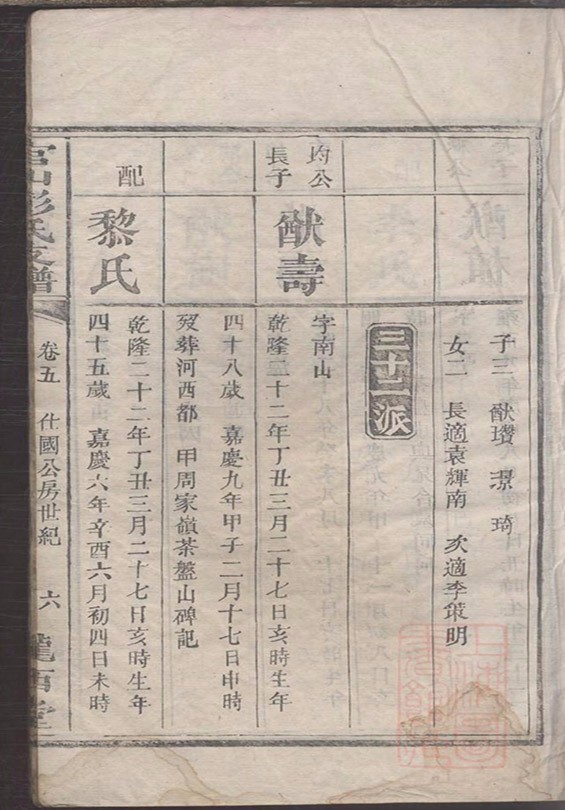 子三 猷瓚 璟 琦
女二 長適袁輝南 次適李策明
三十二派
均公
長子
猷壽
字南山
乾隆二十二年丁丑三月二十七日亥時生年
四十八歲 嘉慶九年甲子二月十七日申時
歿葬河西都 甲周家嶺茶盤山碑記
配
黎氏
乾隆二十二年丁丑三月二十七日亥時生年
四十五歲 嘉慶六年辛酉六月初四日未時
彭氏支譜
卷五 仕國公房世紀 六